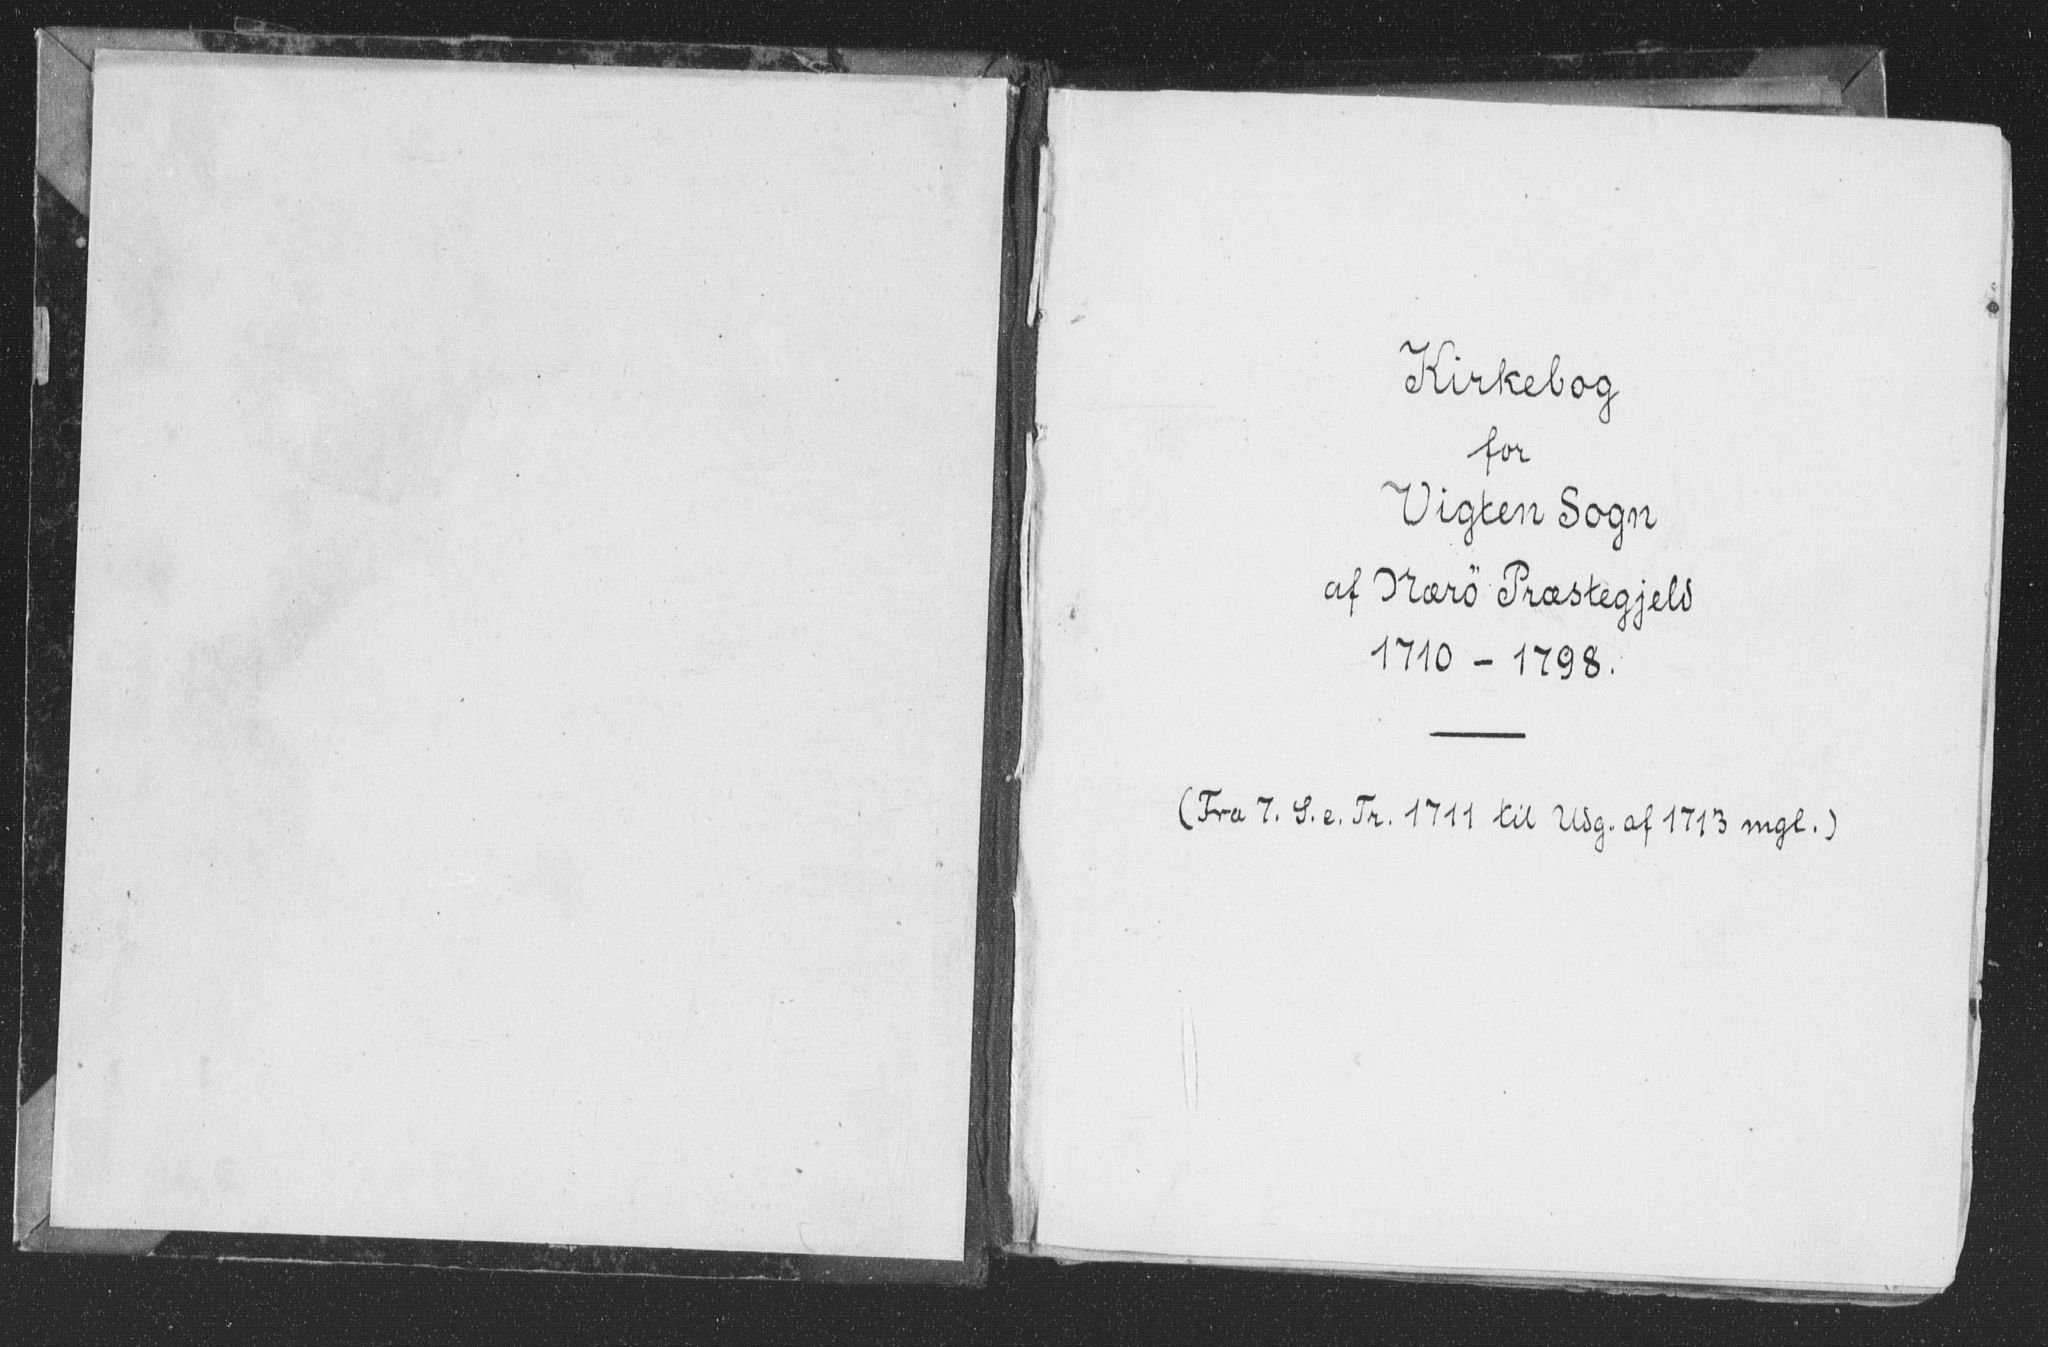 Kirkebog
for
Vigten Sogn
af Nærö Præstegjeld
1710 - 1798.
(Fra 7. S. e. Tr. 1711 til Udg. af 1713 mgl.)